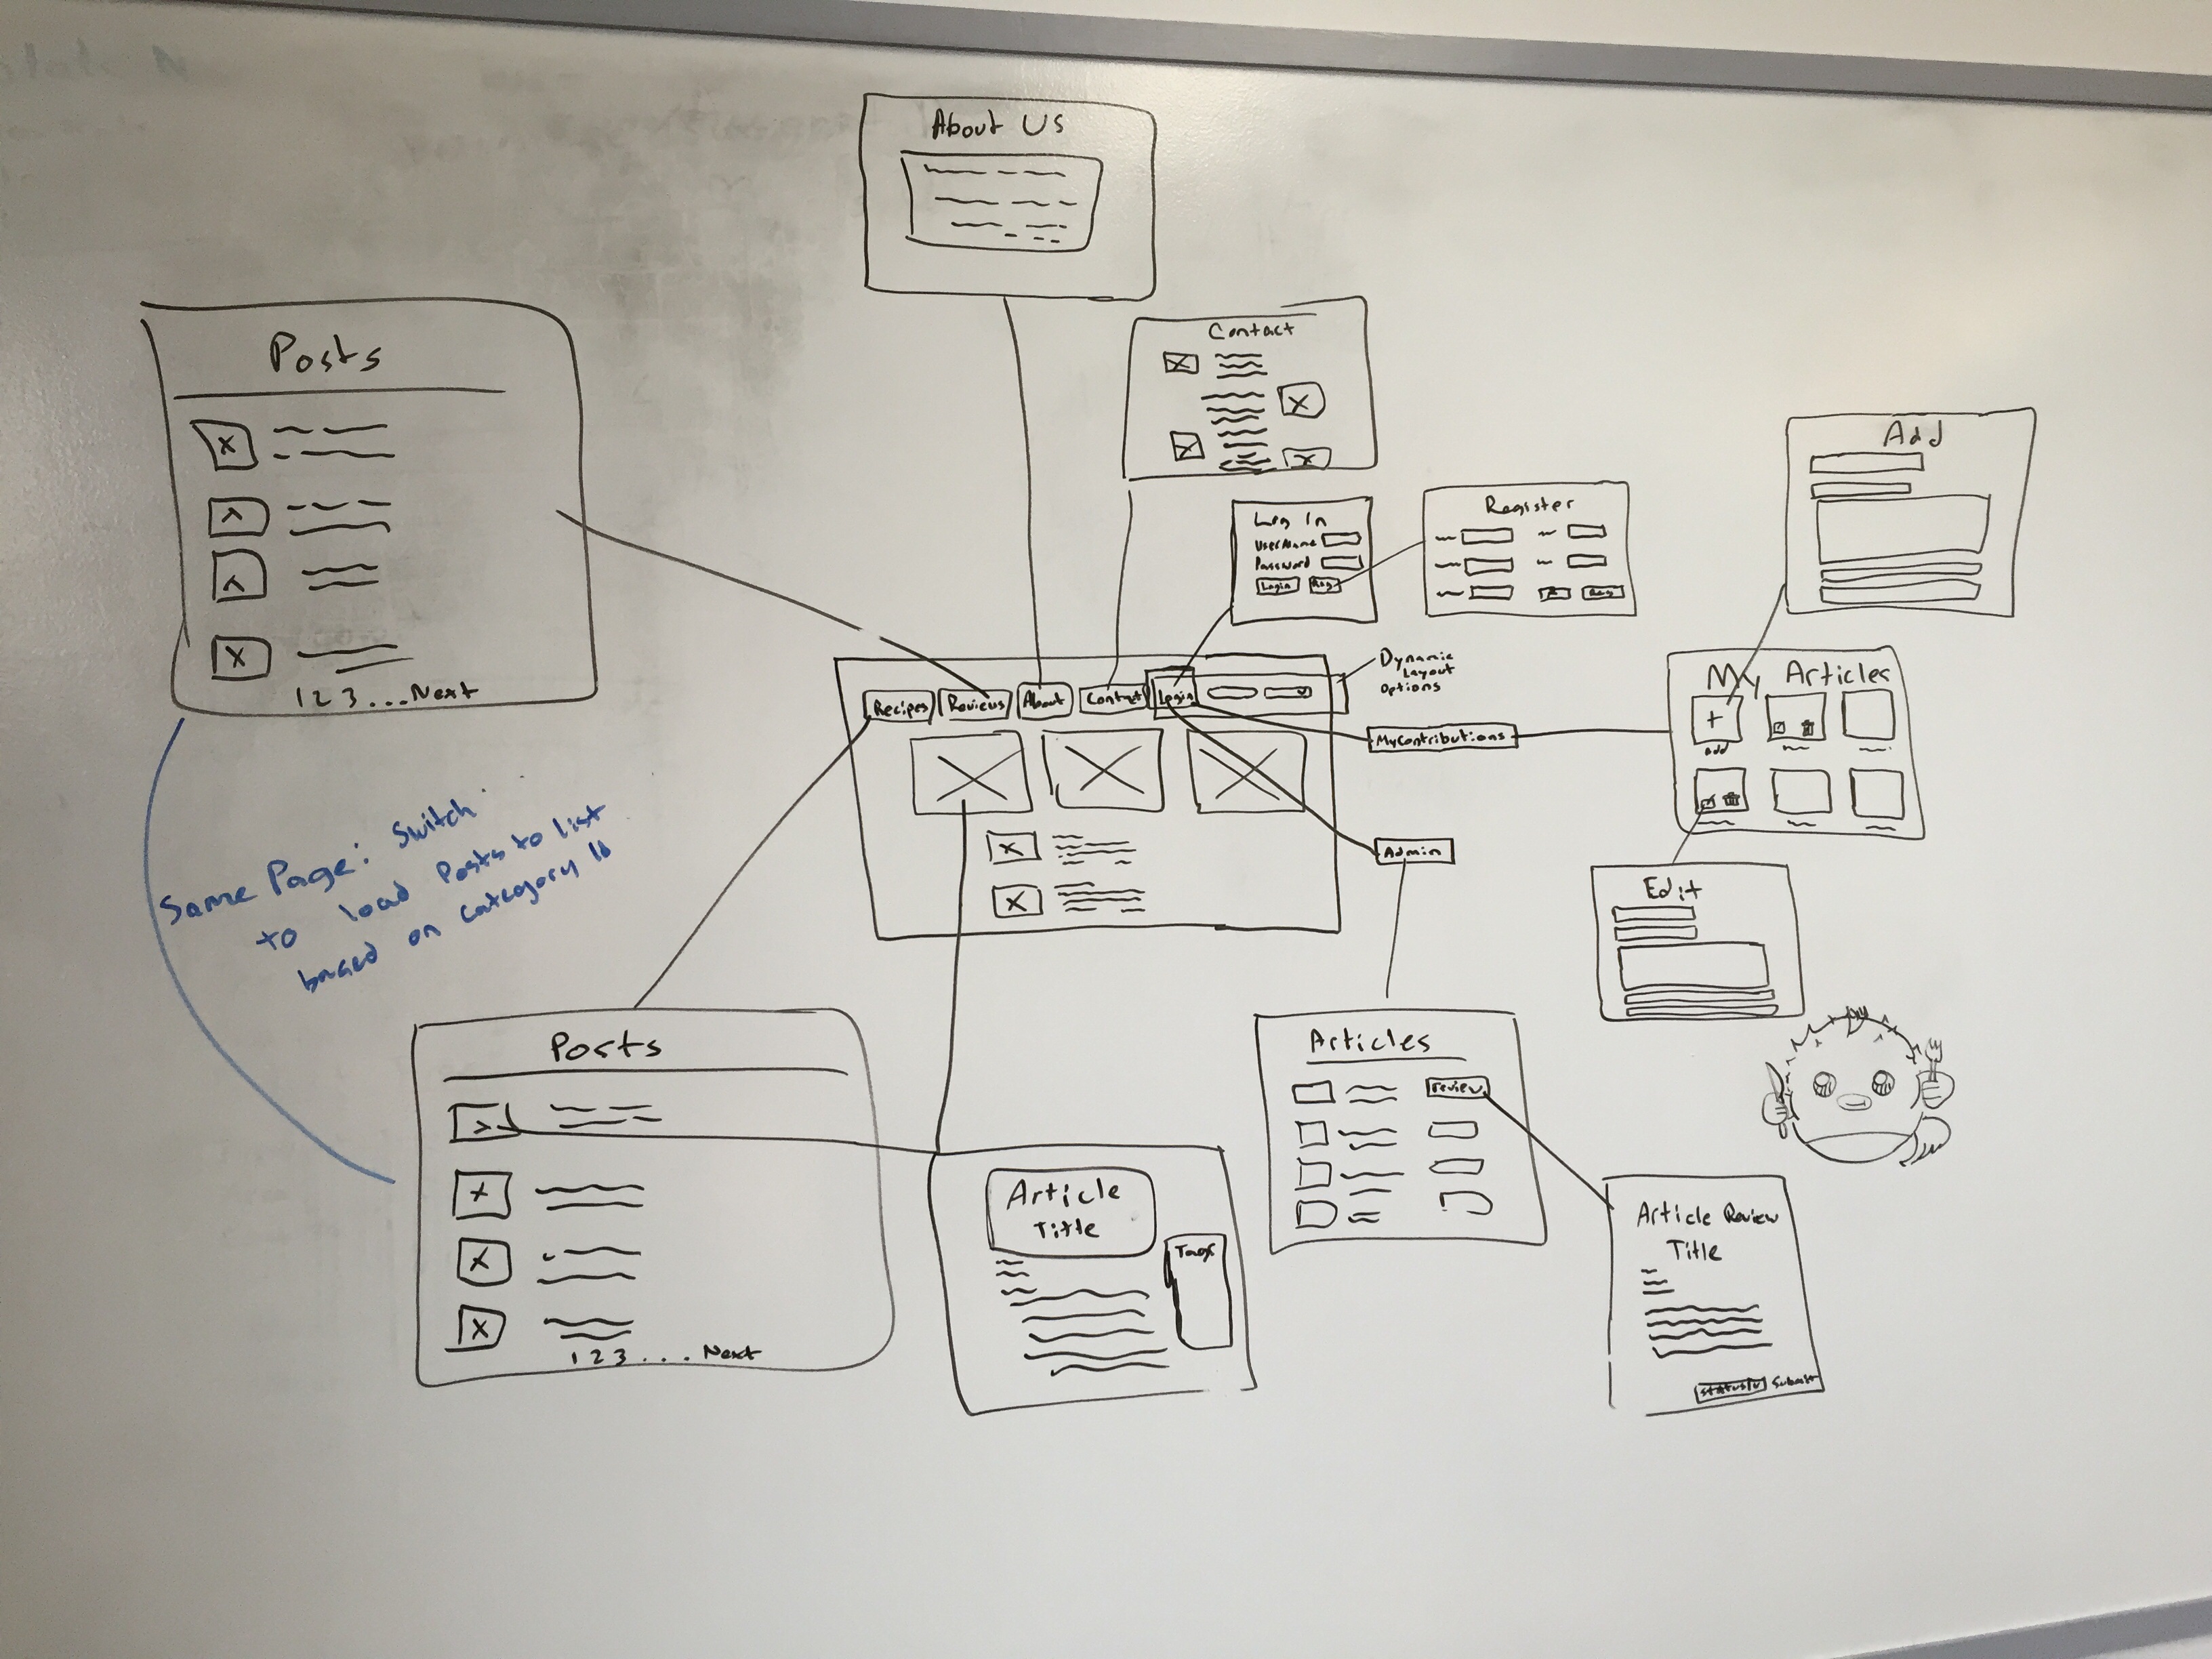 About Us
Contact
Posts
1 2 3 ... Next
Log In
UserName
Password
Login
Reg
Register
Add
Recipes
Reviews
About
Contact
Login
Dynamic
Layout
Options
MyContributions
My Articles
+
add
Admin
Edit
Same Page: Switch
to load Posts to list
based on category ID
Posts
1 2 3 .... Next
Article
Title
Tags
Articles
review
Article Review
Title
Status
Submit